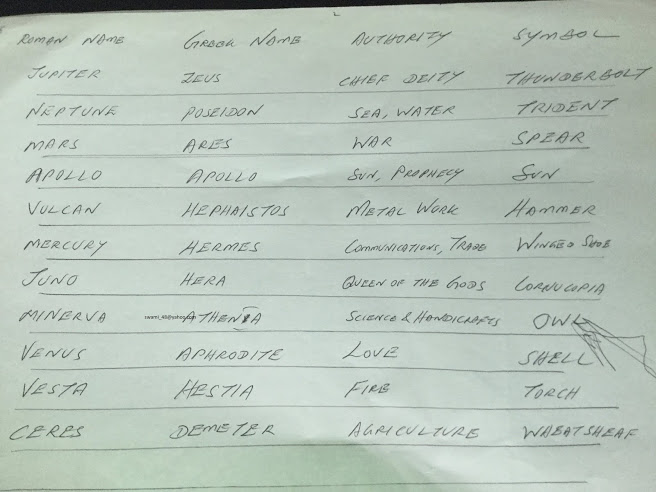 ROMAN NAME GREEK NAME AUTHORITY SYMBOL
JUPITER ZEUS CHIEF DEITY THUNDERBOLT
NEPTUNE POSEIDON SEA, WATER TRIDENT
MARS ARES WAR SPEAR
APOLLO APOLLO SUN, PROPHECY SUN
VULCAN HEPHAISTOS METAL WORK HAMMER
MERCURY HERMES COMMUNICATIONS, TRADE WINGED SHOE
JUNO HERA QUEEN OF THE GODS CORNUCOPIA
MINERVA ATHENA SCIENCE & HANDICRAFTS OWL
VENUS APHRODITE LOVE SHELL
VESTA HESTIA FIRE TORCH
CERES DEMETER AGRICULTURE WHEATSHEAF